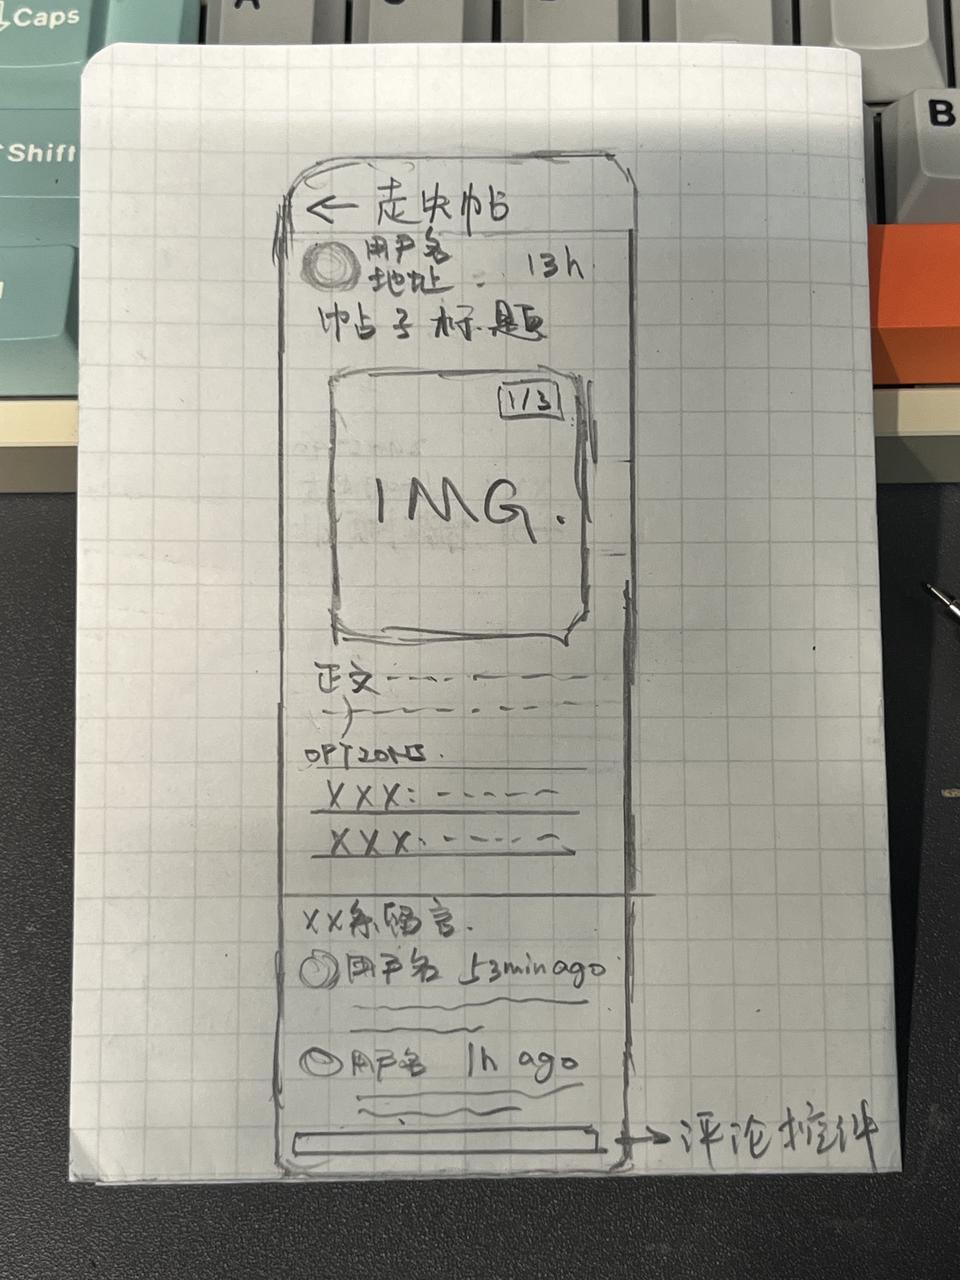 Caps
A
Shift
B
← 走失帖
用户名
地址
13h
帖子标题
1/3
IMG.
正文
OPTIONS.
XXX:
XXX:
XX条留言.
用户名 53min ago
用户名 1h ago
→ 评论控件